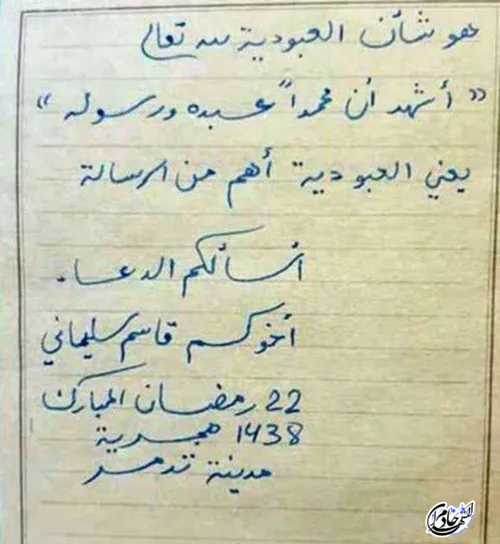 هو شأن العبودية لله تعالى
« أشهد أن محمداً عبده ورسوله »
يعني العبودية أهم من الرسالة
أسألكم الدعاء.
أخوكم قاسم سليماني
22 رمضان المبارك
1438 هجرية
مدينة تدمر